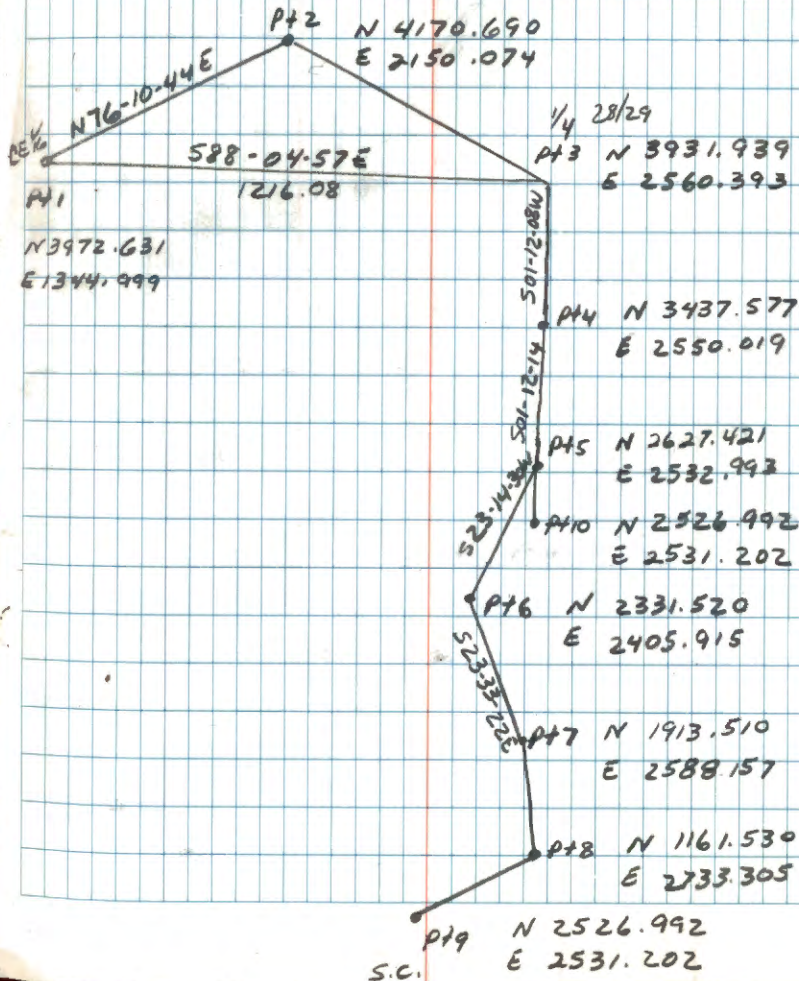 Pt2 N 4170.690
E 2150.074
N76-10-44E
1/4 28/29
CE 1/16
S88-04-57E
Pt3 N 3931.939
Pt1
1216.08
E 2560.393
N3972.631
E1344.999
S01-12-08W
Pt4 N 3437.577
E 2550.019
S01-12-14
Pt5 N 2627.421
E 2532.993
S23-14-30W
Pt10 N 2526.992
E 2531.202
Pt6 N 2331.520
E 2405.915
S23-33-22E
Pt7 N 1913.510
E 2588.157
Pt8 N 1161.530
E 2733.305
Pt9 N 2526.992
S.C. E 2531.202